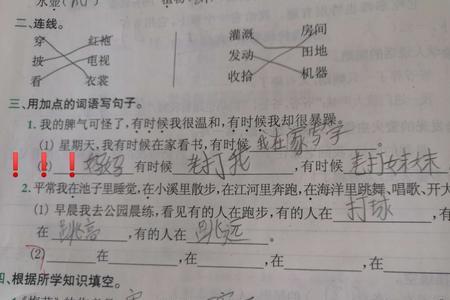 二、连线。
穿 红袍 灌溉 房间
披 电视 发动 田地
看 衣裳 收拾 机器
三、用加点的词语写句子。
1. 我的脾气可怪了,有时候我很温和,有时候我却很暴躁。
(1) 星期天,我有时候在家看书,有时候我在家写字
(2) 妈妈有时候打我,有时候打妹妹
2. 平常我在池子里睡觉,在小溪里散步,在江河里奔跑,在海洋里跳舞、唱歌、开大
(1) 早晨我去公园晨练,看见有的人在跑步,有的人在打球,
在跳高,有的人在跳远。
(2) 在 在 在 在
四、根据所学知识填空。